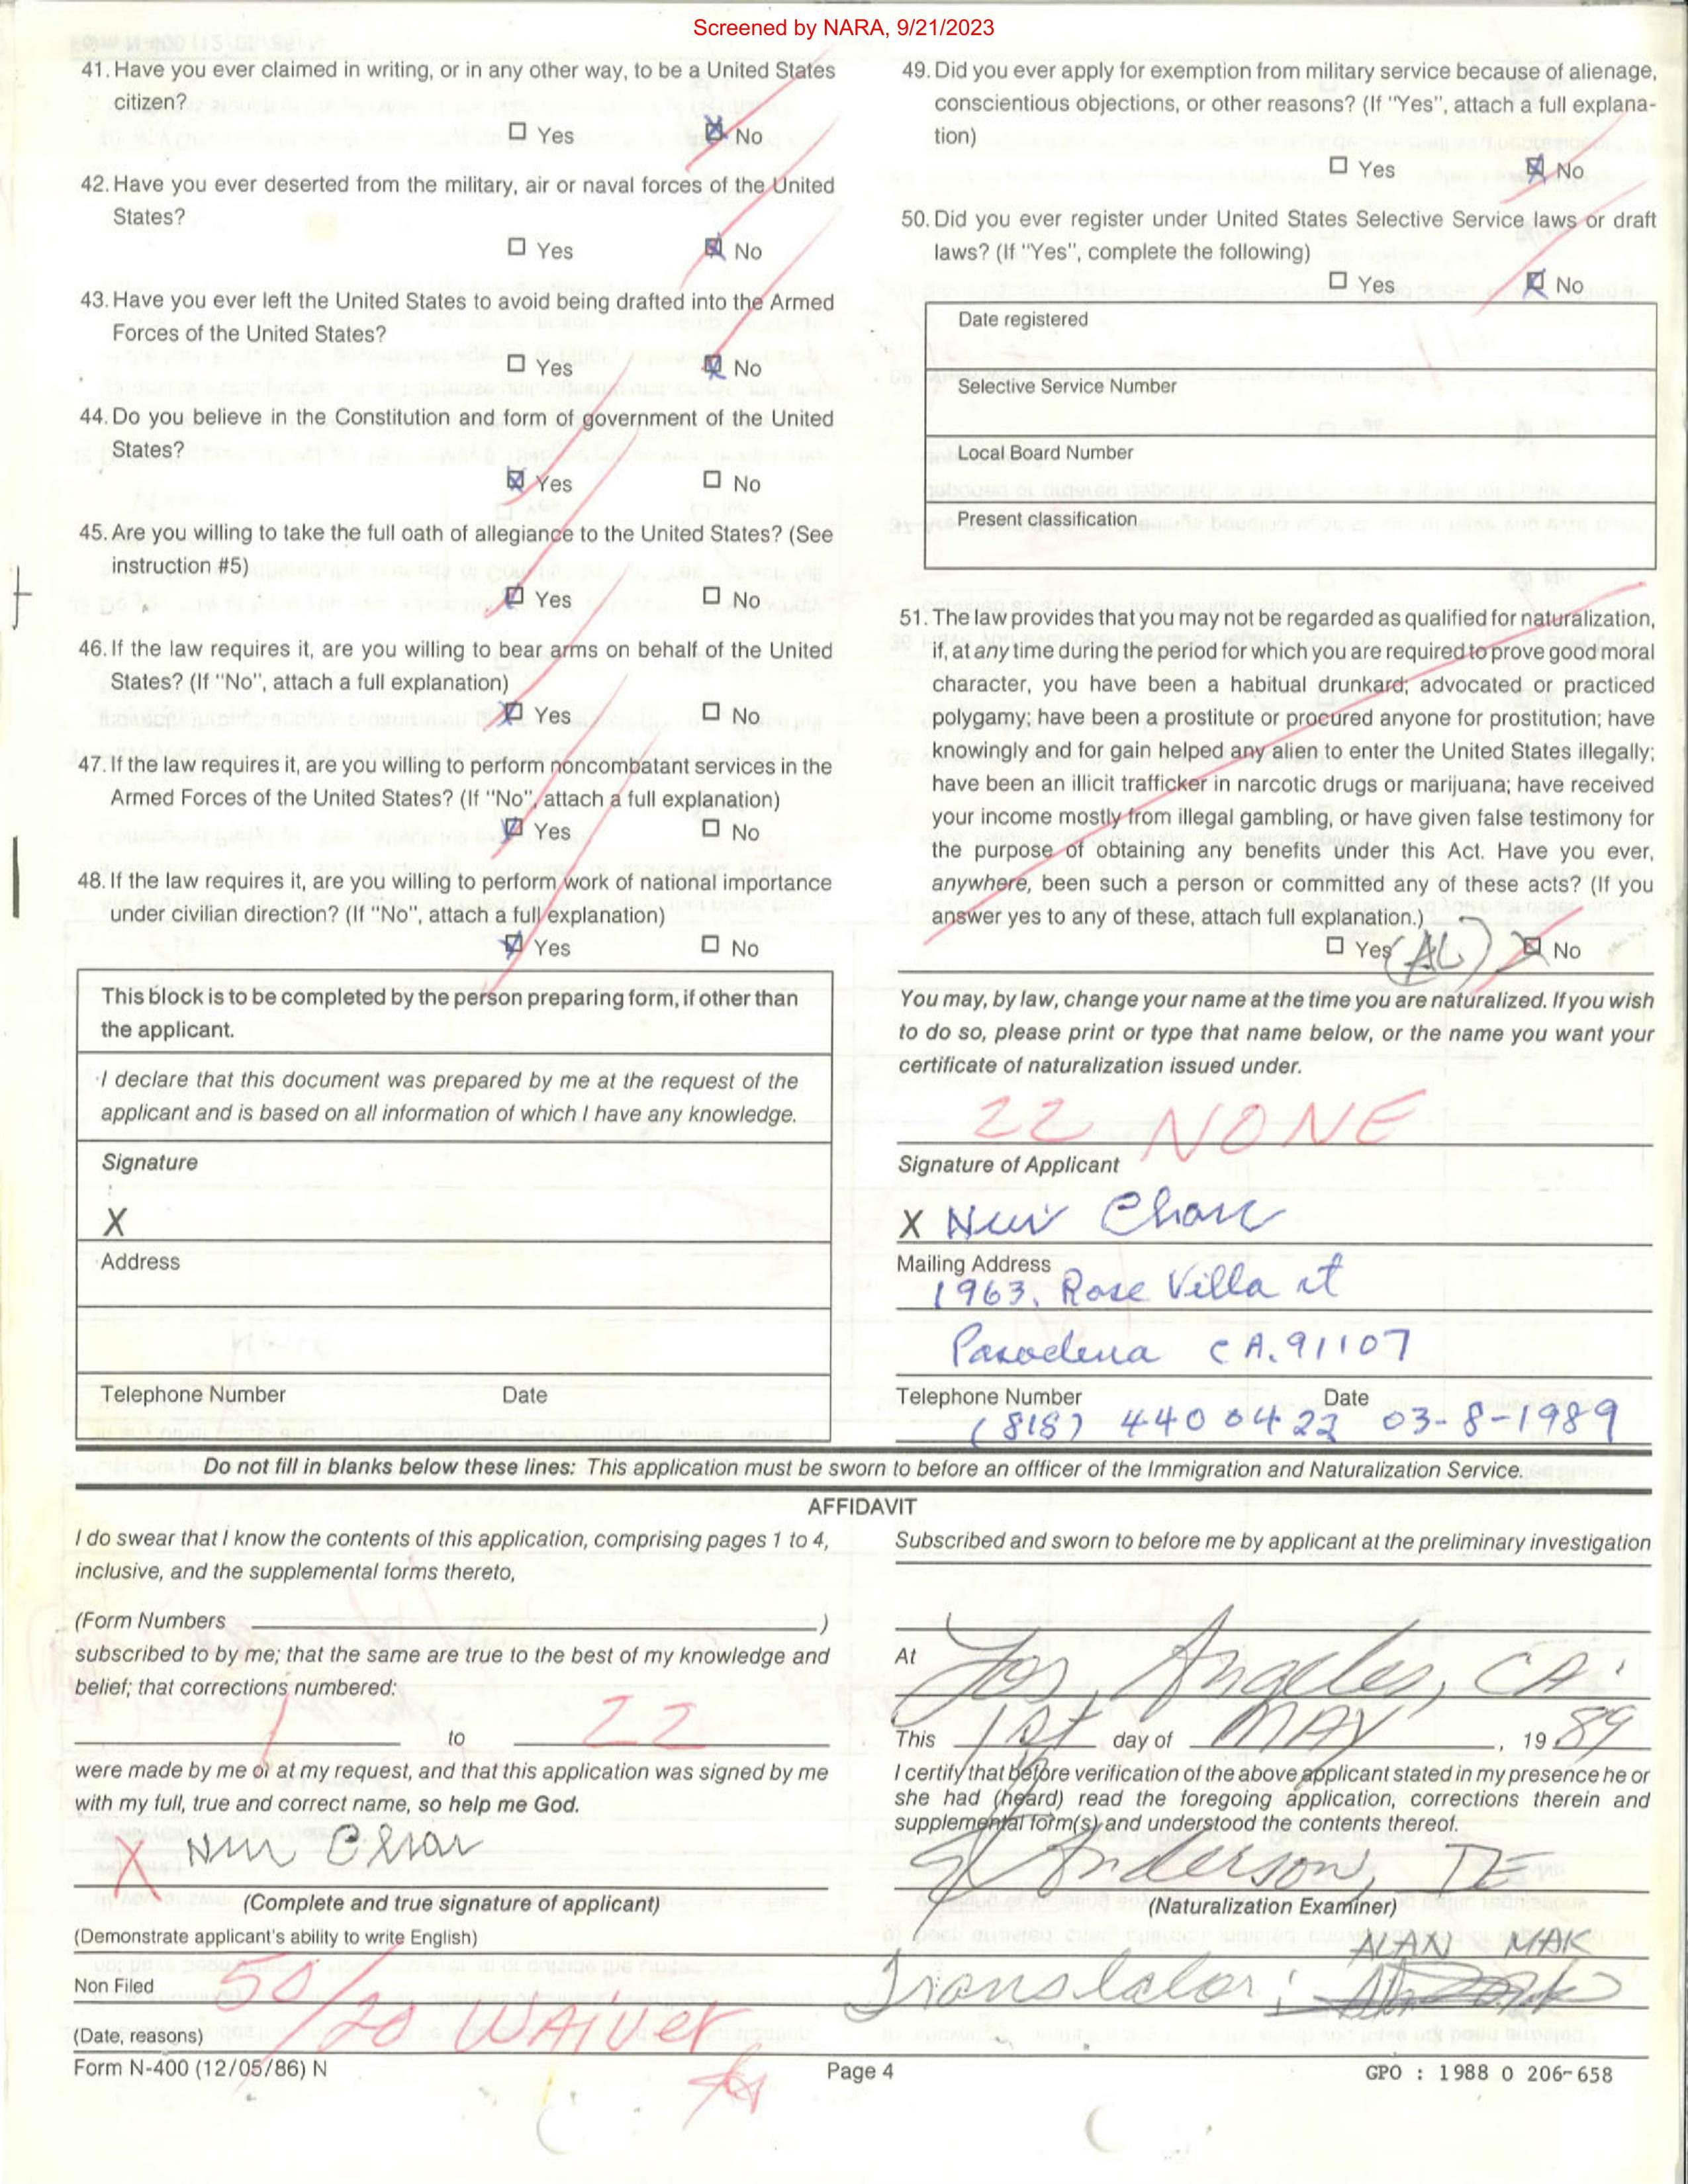 Screened by NARA, 9/21/2023
41. Have you ever claimed in writing, or in any other way, to be a United States
citizen?
☐ Yes ☒ No
42. Have you ever deserted from the military, air or naval forces of the United
States?
☐ Yes ☒ No
43. Have you ever left the United States to avoid being drafted into the Armed
Forces of the United States?
☐ Yes ☒ No
44. Do you believe in the Constitution and form of government of the United
States?
☒ Yes ☐ No
45. Are you willing to take the full oath of allegiance to the United States? (See
instruction #5)
☒ Yes ☐ No
46. If the law requires it, are you willing to bear arms on behalf of the United
States? (If "No", attach a full explanation)
☒ Yes ☐ No
47. If the law requires it, are you willing to perform noncombatant services in the
Armed Forces of the United States? (If "No", attach a full explanation)
☒ Yes ☐ No
48. If the law requires it, are you willing to perform work of national importance
under civilian direction? (If "No", attach a full explanation)
☒ Yes ☐ No
This block is to be completed by the person preparing form, if other than
the applicant.
I declare that this document was prepared by me at the request of the
applicant and is based on all information of which I have any knowledge.
Signature
X
Address
Telephone Number Date
49. Did you ever apply for exemption from military service because of alienage,
conscientious objections, or other reasons? (If "Yes", attach a full explana-
tion)
☐ Yes ☒ No
50. Did you ever register under United States Selective Service laws or draft
laws? (If "Yes", complete the following)
☐ Yes ☒ No
Date registered
Selective Service Number
Local Board Number
Present classification
51. The law provides that you may not be regarded as qualified for naturalization,
if, at any time during the period for which you are required to prove good moral
character, you have been a habitual drunkard; advocated or practiced
polygamy; have been a prostitute or procured anyone for prostitution; have
knowingly and for gain helped any alien to enter the United States illegally;
have been an illicit trafficker in narcotic drugs or marijuana; have received
your income mostly from illegal gambling, or have given false testimony for
the purpose of obtaining any benefits under this Act. Have you ever,
anywhere, been such a person or committed any of these acts? (If you
answer yes to any of these, attach full explanation.)
☐ Yes (AL) ☒ No
You may, by law, change your name at the time you are naturalized. If you wish
to do so, please print or type that name below, or the name you want your
certificate of naturalization issued under.
22 NONE
Signature of Applicant
X
Mailing Address
1963. Rose Villa st
Pasadena CA. 91107
Telephone Number Date
(818) 440 0422 03-8-1989
Do not fill in blanks below these lines: This application must be sworn to before an offficer of the Immigration and Naturalization Service.
AFFIDAVIT
I do swear that I know the contents of this application, comprising pages 1 to 4,
inclusive, and the supplemental forms thereto,
(Form Numbers )
subscribed to by me; that the same are true to the best of my knowledge and
belief; that corrections numbered:
1 to 22
were made by me or at my request, and that this application was signed by me
with my full, true and correct name, so help me God.
X
(Complete and true signature of applicant)
(Demonstrate applicant's ability to write English)
Non Filed
50/20 WAIVER
(Date, reasons)
Subscribed and sworn to before me by applicant at the preliminary investigation
At Los Angeles, CA.
This 1st day of MAY, 19 89
I certify that before verification of the above applicant stated in my presence he or
she had (heard) read the foregoing application, corrections therein and
supplemental form(s) and understood the contents thereof.
Anderson,
(Naturalization Examiner)
ALAN MAK
Translator:
Form N-400 (12/05/86) N Page 4 GPO : 1988 O 206-658